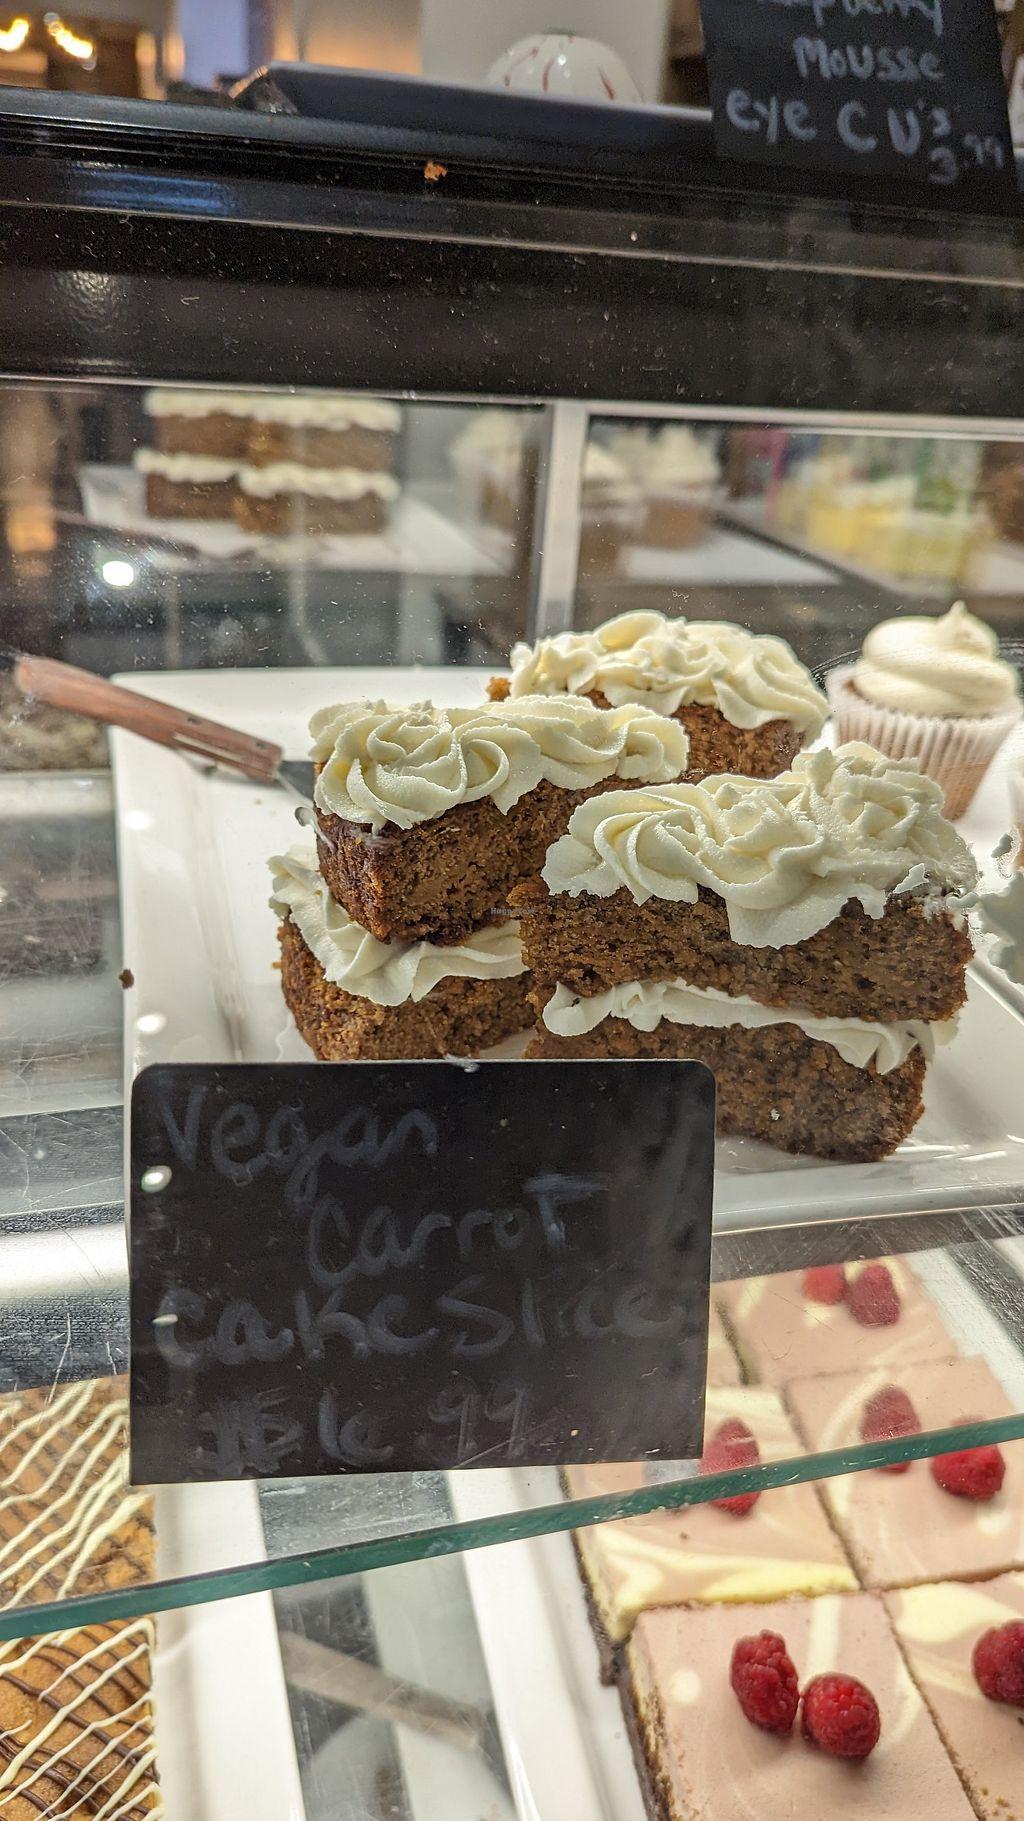 Mousse
eye CU's
3.99
Vegan
Carrot
cake Slice
99